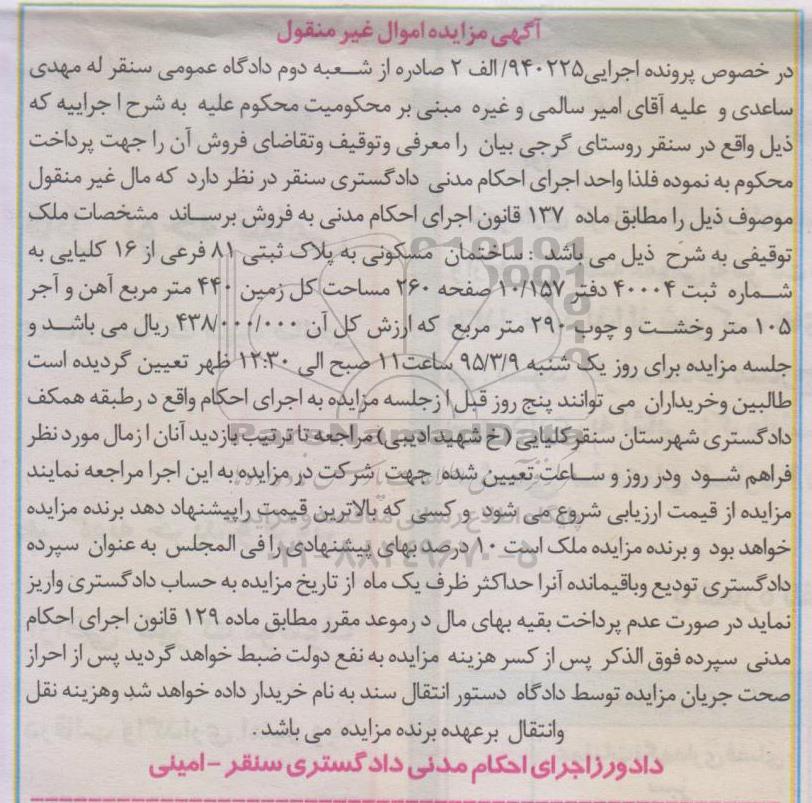 آگهی مزایده اموال غیر منقول
در خصوص پرونده اجرایی۹۴۰۲۲۵/الف ۲ صادره از شعبه دوم دادگاه عمومی سنقر له مهدی
ساعدی و علیه آقای امیر سالمی و غیره مبنی بر محکومیت محکوم علیه به شرح ا جراییه که
ذیل واقع در سنقر روستای گرجی بیان را معرفی وتوقیف وتقاضای فروش آن را جهت پرداخت
محکوم به نموده فلذا واحد اجرای احکام مدنی دادگستری سنقر در نظر دارد که مال غیر منقول
موصوف ذیل را مطابق ماده ۱۳۷ قانون اجرای احکام مدنی به فروش برساند مشخصات ملک
توقیفی به شرح ذیل می باشد : ساختمان مسکونی به پلاک ثبتی ۸۱ فرعی از ۱۶ کلیایی به
شماره ثبت ۴۰۰۰۴ دفتر ۱۰/۱۵۷ صفحه ۲۶۰ مساحت کل زمین ۴۴۰ متر مربع آهن و آجر
۱۰۵ متر وخشت و چوب ۲۹۰ متر مربع که ارزش کل آن ۴۳۸/۰۰۰/۰۰۰ ریال می باشد و
جلسه مزایده برای روز یک شنبه ۹۵/۳/۹ ساعت۱۱ صبح الی ۱۲:۳۰ ظهر تعیین گردیده است
طالبین وخریداران می توانند پنج روز قبل ا زجلسه مزایده به اجرای احکام واقع د رطبقه همکف
دادگستری شهرستان سنقرکلیایی (خ شهید ادیبی) مراجعه تا ترتیب بازدید آنان ا زمال مورد نظر
فراهم شود ودر روز و ساعت تعیین شده جهت شرکت در مزایده به این اجرا مراجعه نمایند
مزایده از قیمت ارزیابی شروع می شود و کسی که بالاترین قیمت راپیشنهاد دهد برنده مزایده
خواهد بود و برنده مزایده ملک است ۱۰ درصد بهای پیشنهادی را فی المجلس به عنوان سپرده
دادگستری تودیع وباقیمانده آنرا حداکثر ظرف یک ماه از تاریخ مزایده به حساب دادگستری واریز
نماید در صورت عدم پرداخت بقیه بهای مال د رموعد مقرر مطابق ماده ۱۲۹ قانون اجرای احکام
مدنی سپرده فوق الذکر پس از کسر هزینه مزایده به نفع دولت ضبط خواهد گردید پس از احراز
صحت جریان مزایده توسط دادگاه دستور انتقال سند به نام خریدار داده خواهد شد وهزینه نقل
وانتقال برعهده برنده مزایده می باشد .
دادورزاجرای احکام مدنی دادگستری سنقر - امینی